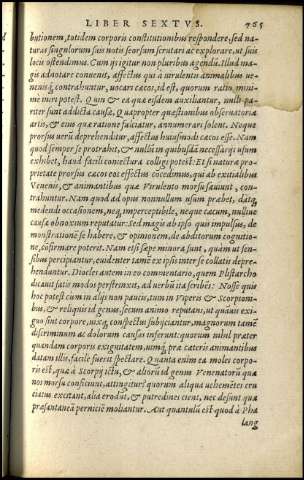 LIBER SEXTVS. 765
butionem, totidem corporis constitutionibus respondere, sed na-
turas singulorum suis notis seorsum scrutari ac explorare, ut suis
locis ostendimus. Cum igitur non pluribus agendũ. Illud ma-
gis adnotare conuenit, affectus qui à uirulentis animalibus ue-
neisq́; contrahuntur, uocari cæcos, id est, quorum ratio mini-
me iniri potest. Quin & ea quæ eisdem auxiliantur, nulli pa-
riter sunt addicta causæ. Quapropter quæstionibus obseruatoriæ
artis, & cum quæ ratione fulcitur, annumerari solent. Neque
prorsus uerũ deprehenditur, affectus huiusmodi cæcos esse. Nam
quod semper se protrahet, & nulli in quibusdã necessarijs usum
exhibet, haud facili coniectura colligi potest: Etsi naturæ pro-
prietate prorsus cæcos eos effectus concedimus, qui ab exitialibus
Venenis, & animantibus quæ Virulento morsu sæuiunt, con-
trahuntur. Nam quod ad opus nonnullum usum præbet, datq́;
medendi occasionem, neq; imperceptibile, neque cæcum, nulliue
causæ obnoxium reputatur. Sed magis ab ipso quis impulsus, de
monstratione se habere, & opinionem, de abditorum cognitio-
ne, cõfirmare poterit. Nam etsi sæpe minora sunt, quàm ut sen-
sibus percipiantur, euidenter tamẽ ex ipsis inter se collatis depre-
henduntur. Diocles autem in eo commentario, quem Plistarcho
dicauit satis modos perstrinxit, ad uerbũ ita scribẽs: Nosse quis
hoc potest cum in alijs non paucis, tum in Viperis & Scorpioni-
bus, & reliquis id genus, secum animo reputans, ut quàuis exi-
guo sint corpore, uixq́; conspectui subijciantur, magnorum tamẽ
discriminum ac dolorum causas inferunt: quorum nihil præter
quandam corporis exiguitatem, unicuiq́; præ cæteris animantibus
datam illis, facile fuerit spectare. Quanta enim ea moles corpo-
ris est, quæ à Scorpij ictu, & aliorũ id genus Venenatorũ quæ
nos morsu conficiunt, attingitur? quorum aliqua uehementes cru
ciatus excitant, alia erodũt, & putredines cient, nec desunt quæ
præsentaneã perniciẽ moliantur. Aut quantulũ est quod à Pha
lang